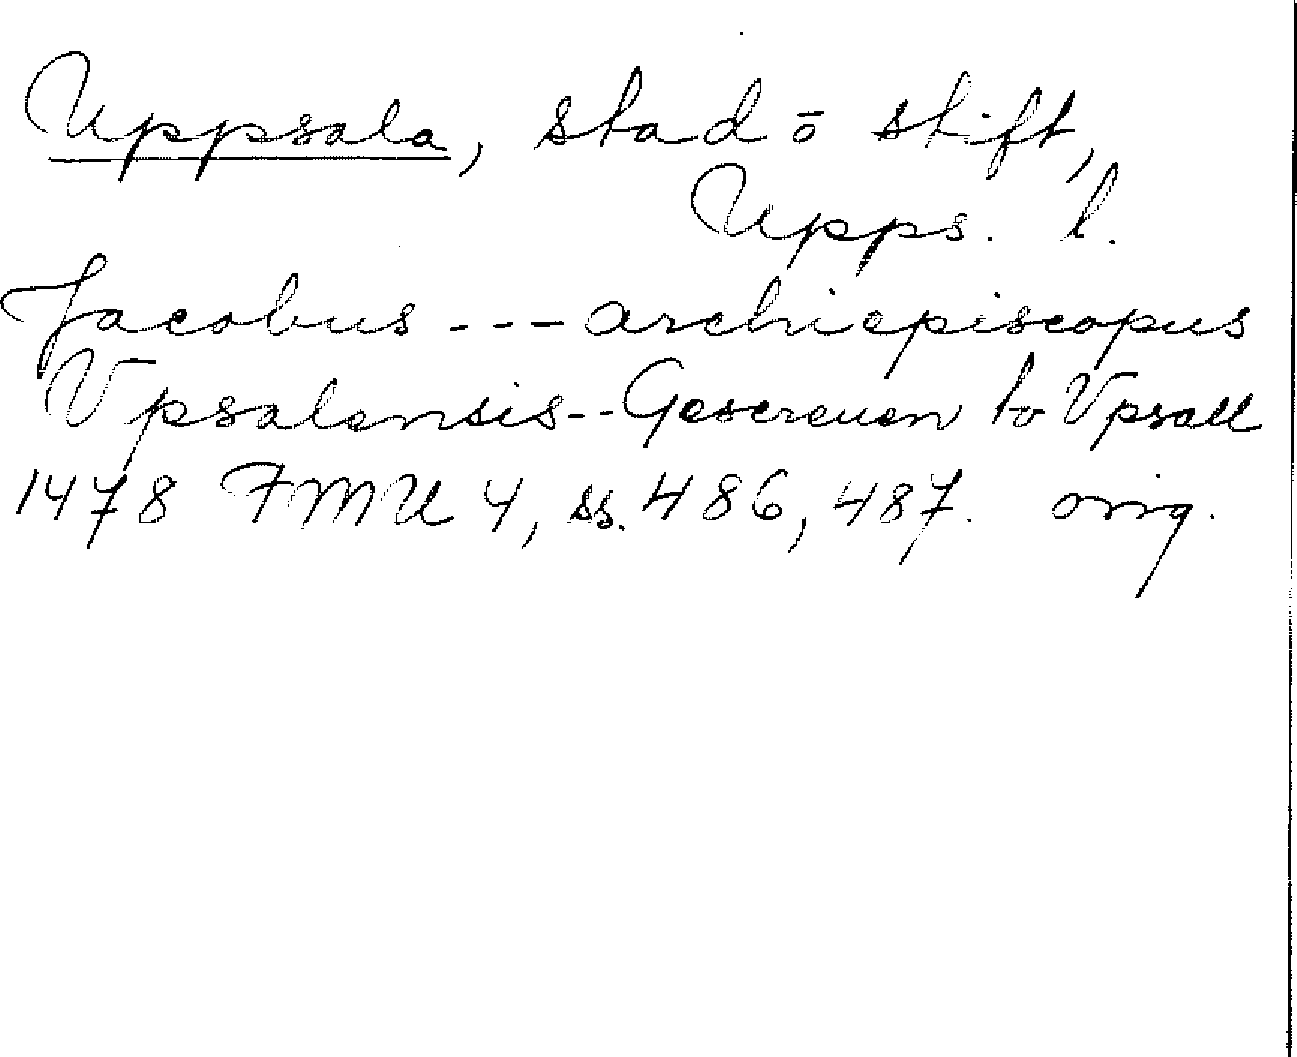 Uppsala, stad ō stift,
Upps. l.
Jacobus --- archiepiscopus
Vpsalensis -- Gescreuen to Vpsall
1478 FMU 4, ss. 486, 487. orig.